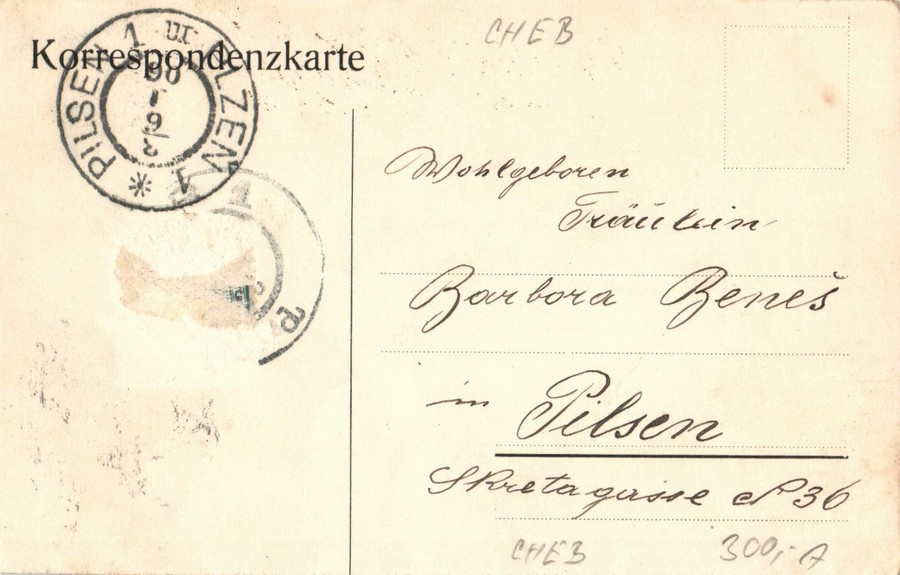 CHEB
Korrespondenzkarte
PILSEN 1 PLZEŇ 1
Wohlgeboren
Fräulein
Barbora Beneš
in Pilsen
Skretagasse N 36
CHEB 300,- A